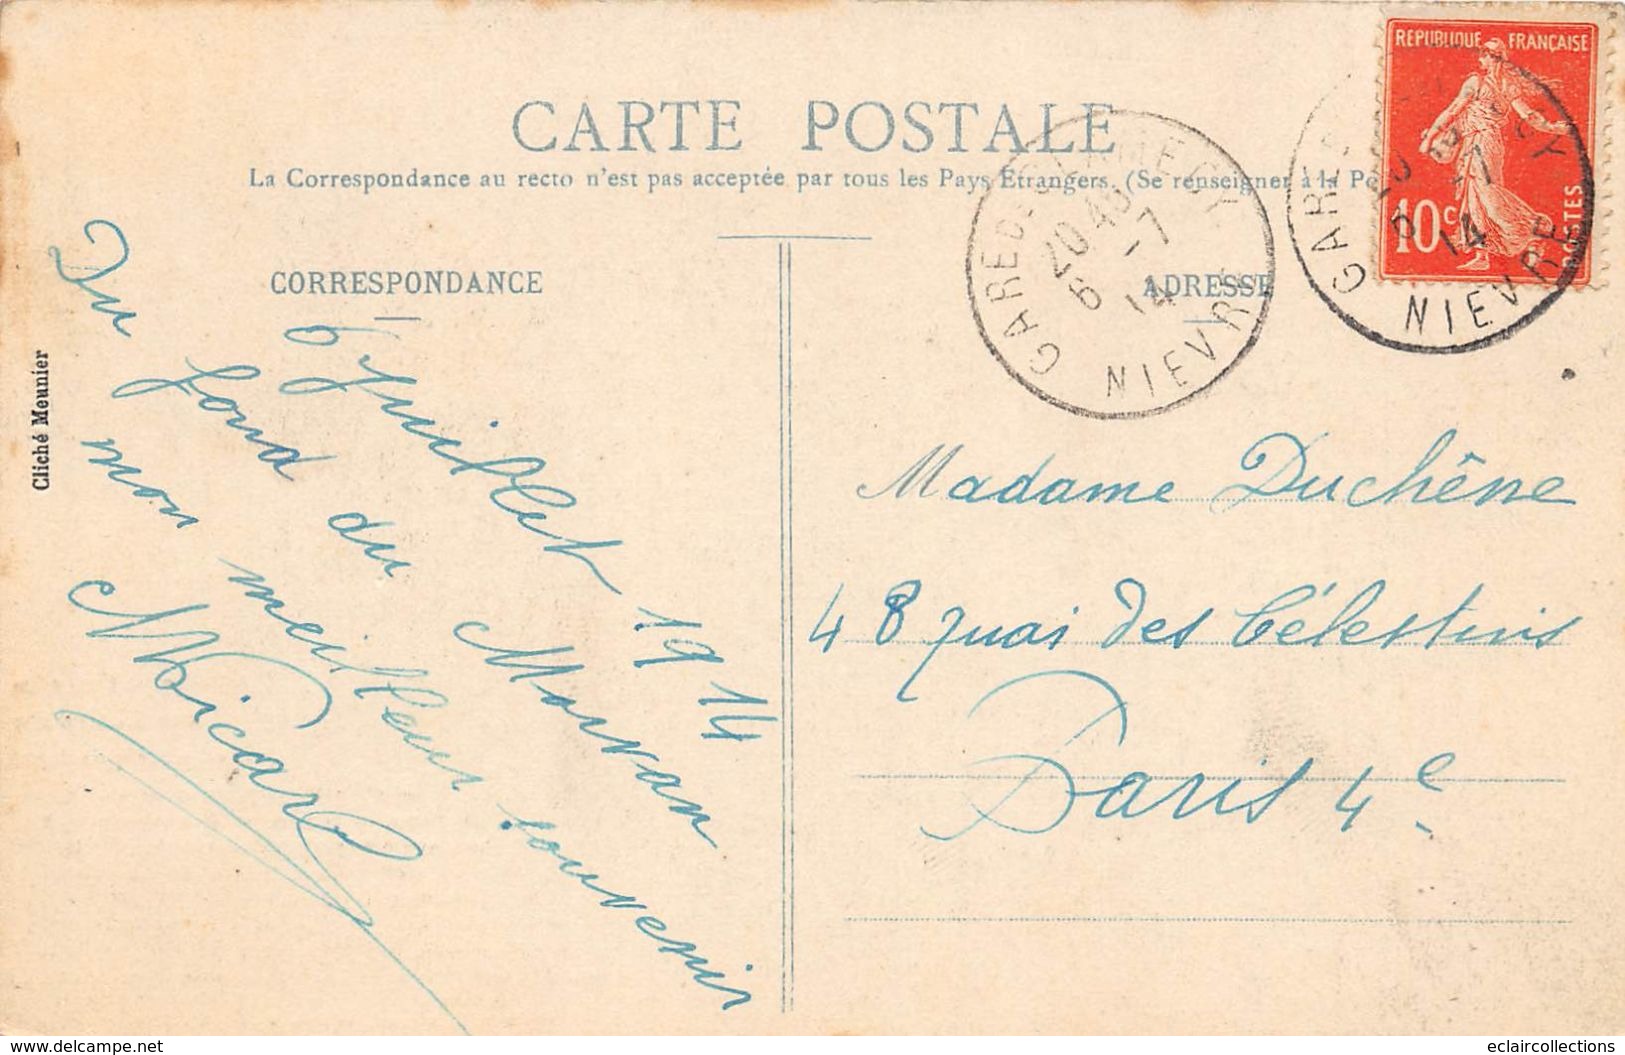 CARTE POSTALE
La Correspondance au recto n'est pas acceptée par tous les Pays Étrangers. (Se renseigner à la Po
CORRESPONDANCE
ADRESSE
REPUBLIQUE FRANÇAISE
10c
POSTES
GARE DE CLAMECY
20.45
6 -7
14
NIEVRE
GARE
-7
14
NIEVRE
Cliché Meunier
6 Juillet 1914
Du fond du Morvan
mon meilleur souvenir
Madame Duchêne
48 quai des Célestins
Paris 4e
www.delcampe.net
eclaircollections